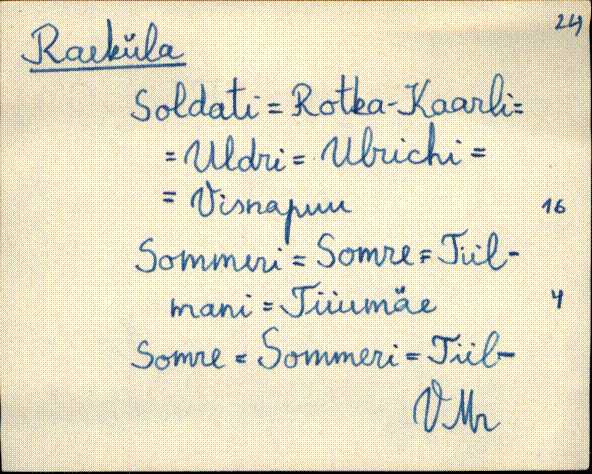 24
Raeküla
Soldati = Rotka-Kaarli =
= Uldri = Ulrichi =
= Visnapuu 16
Sommeri = Somre = Tiil-
mani = Tiiumäe 4
Somre = Sommeri = Tiil-
VMr